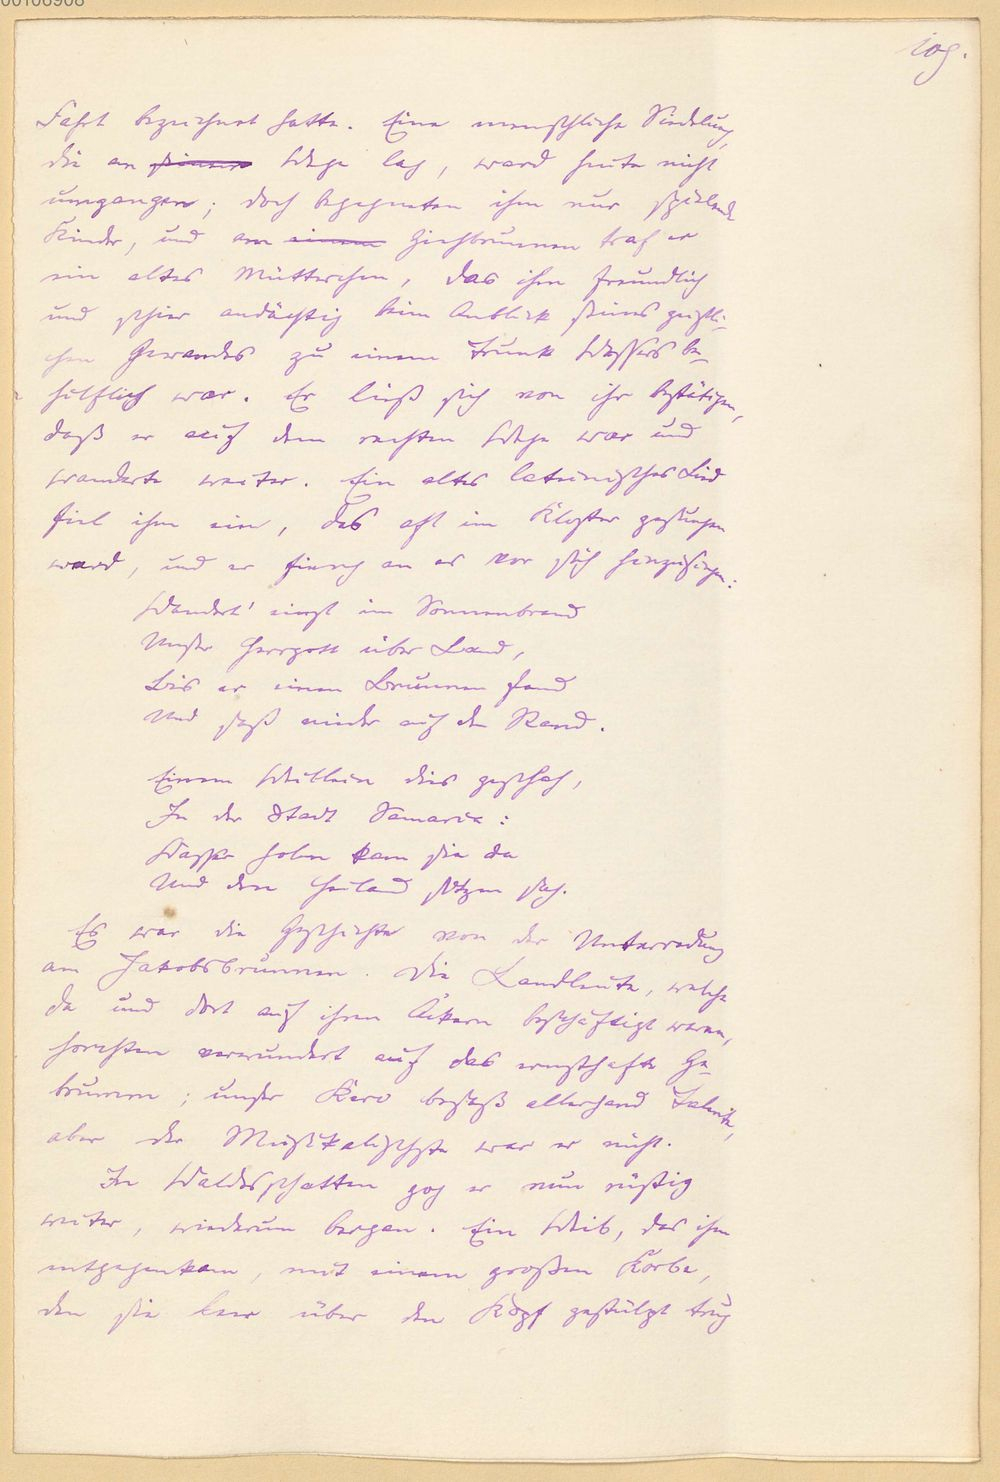 00106908
109.
Fahrt bezeichnet hatte. Eine menschliche Siedelung,
die am seinem Wege lag, ward heute nicht
umgangen; doch begegneten ihm nur spielende
Kinder, und am einem Ziehbrunnen traf er
ein altes Mütterchen, das ihm freundlich
und schier andächtig beim Anblick seines geistli-
chen Gewandes zu einem Trunk Wassers be-
hilflich war. Er ließ sich von ihr bestätigen,
daß er auf dem rechten Wege war und
wanderte weiter. Ein altes lateinisches Lied
fiel ihm ein, das oft im Kloster gesungen
ward, und er fieng an es vor sich hinzusingen:
Wandert' einst im Sonnenbrand
Unser Herrgott über Land,
Bis er einen Brunnen fand
Und saß nieder auf den Rand.
Einem Weiblein dies geschah,
In der Stadt Samaria:
Wasser holen kam sie da
Und den Heiland sitzen sah.
Es war die Geschichte von der Unterredung
am Jakobsbrunnen. Die Landleute, welche
da und dort auf ihren Äckern beschäftigt waren,
horchten verwundert auf das ernsthafte Ge-
brumm; unser Karo besaß allerhand Talente,
aber der Musikalischste war er nicht.
In Waldesschatten zog er nun rüstig
weiter, wiederum bergan. Ein Weib, das ihm
entgegenkam, mit einem großen Korbe,
den sie leer über den Kopf gestülpt trug